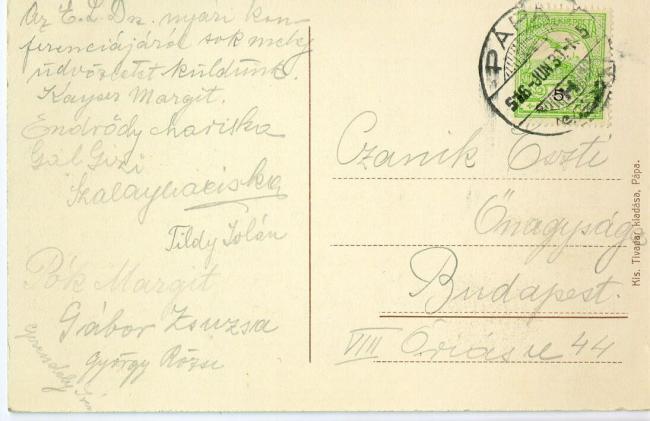 Az E. L. Dn. nyári kon-
ferenciájáról sok meleg
üdvözletet küldünk.
Kayser Margit.
Endrődy Mariska
Gál Gizi
Szalay Mariska
Tildy Jolán
Pók Margit
Gábor Zsuzsa
György Rózsi
PÁPA
916 JUN 3
Czanik Eszti
Őnagysága
Budapest.
VIII Óriás u 44
Kis Tivadar kiadása, Pápa.